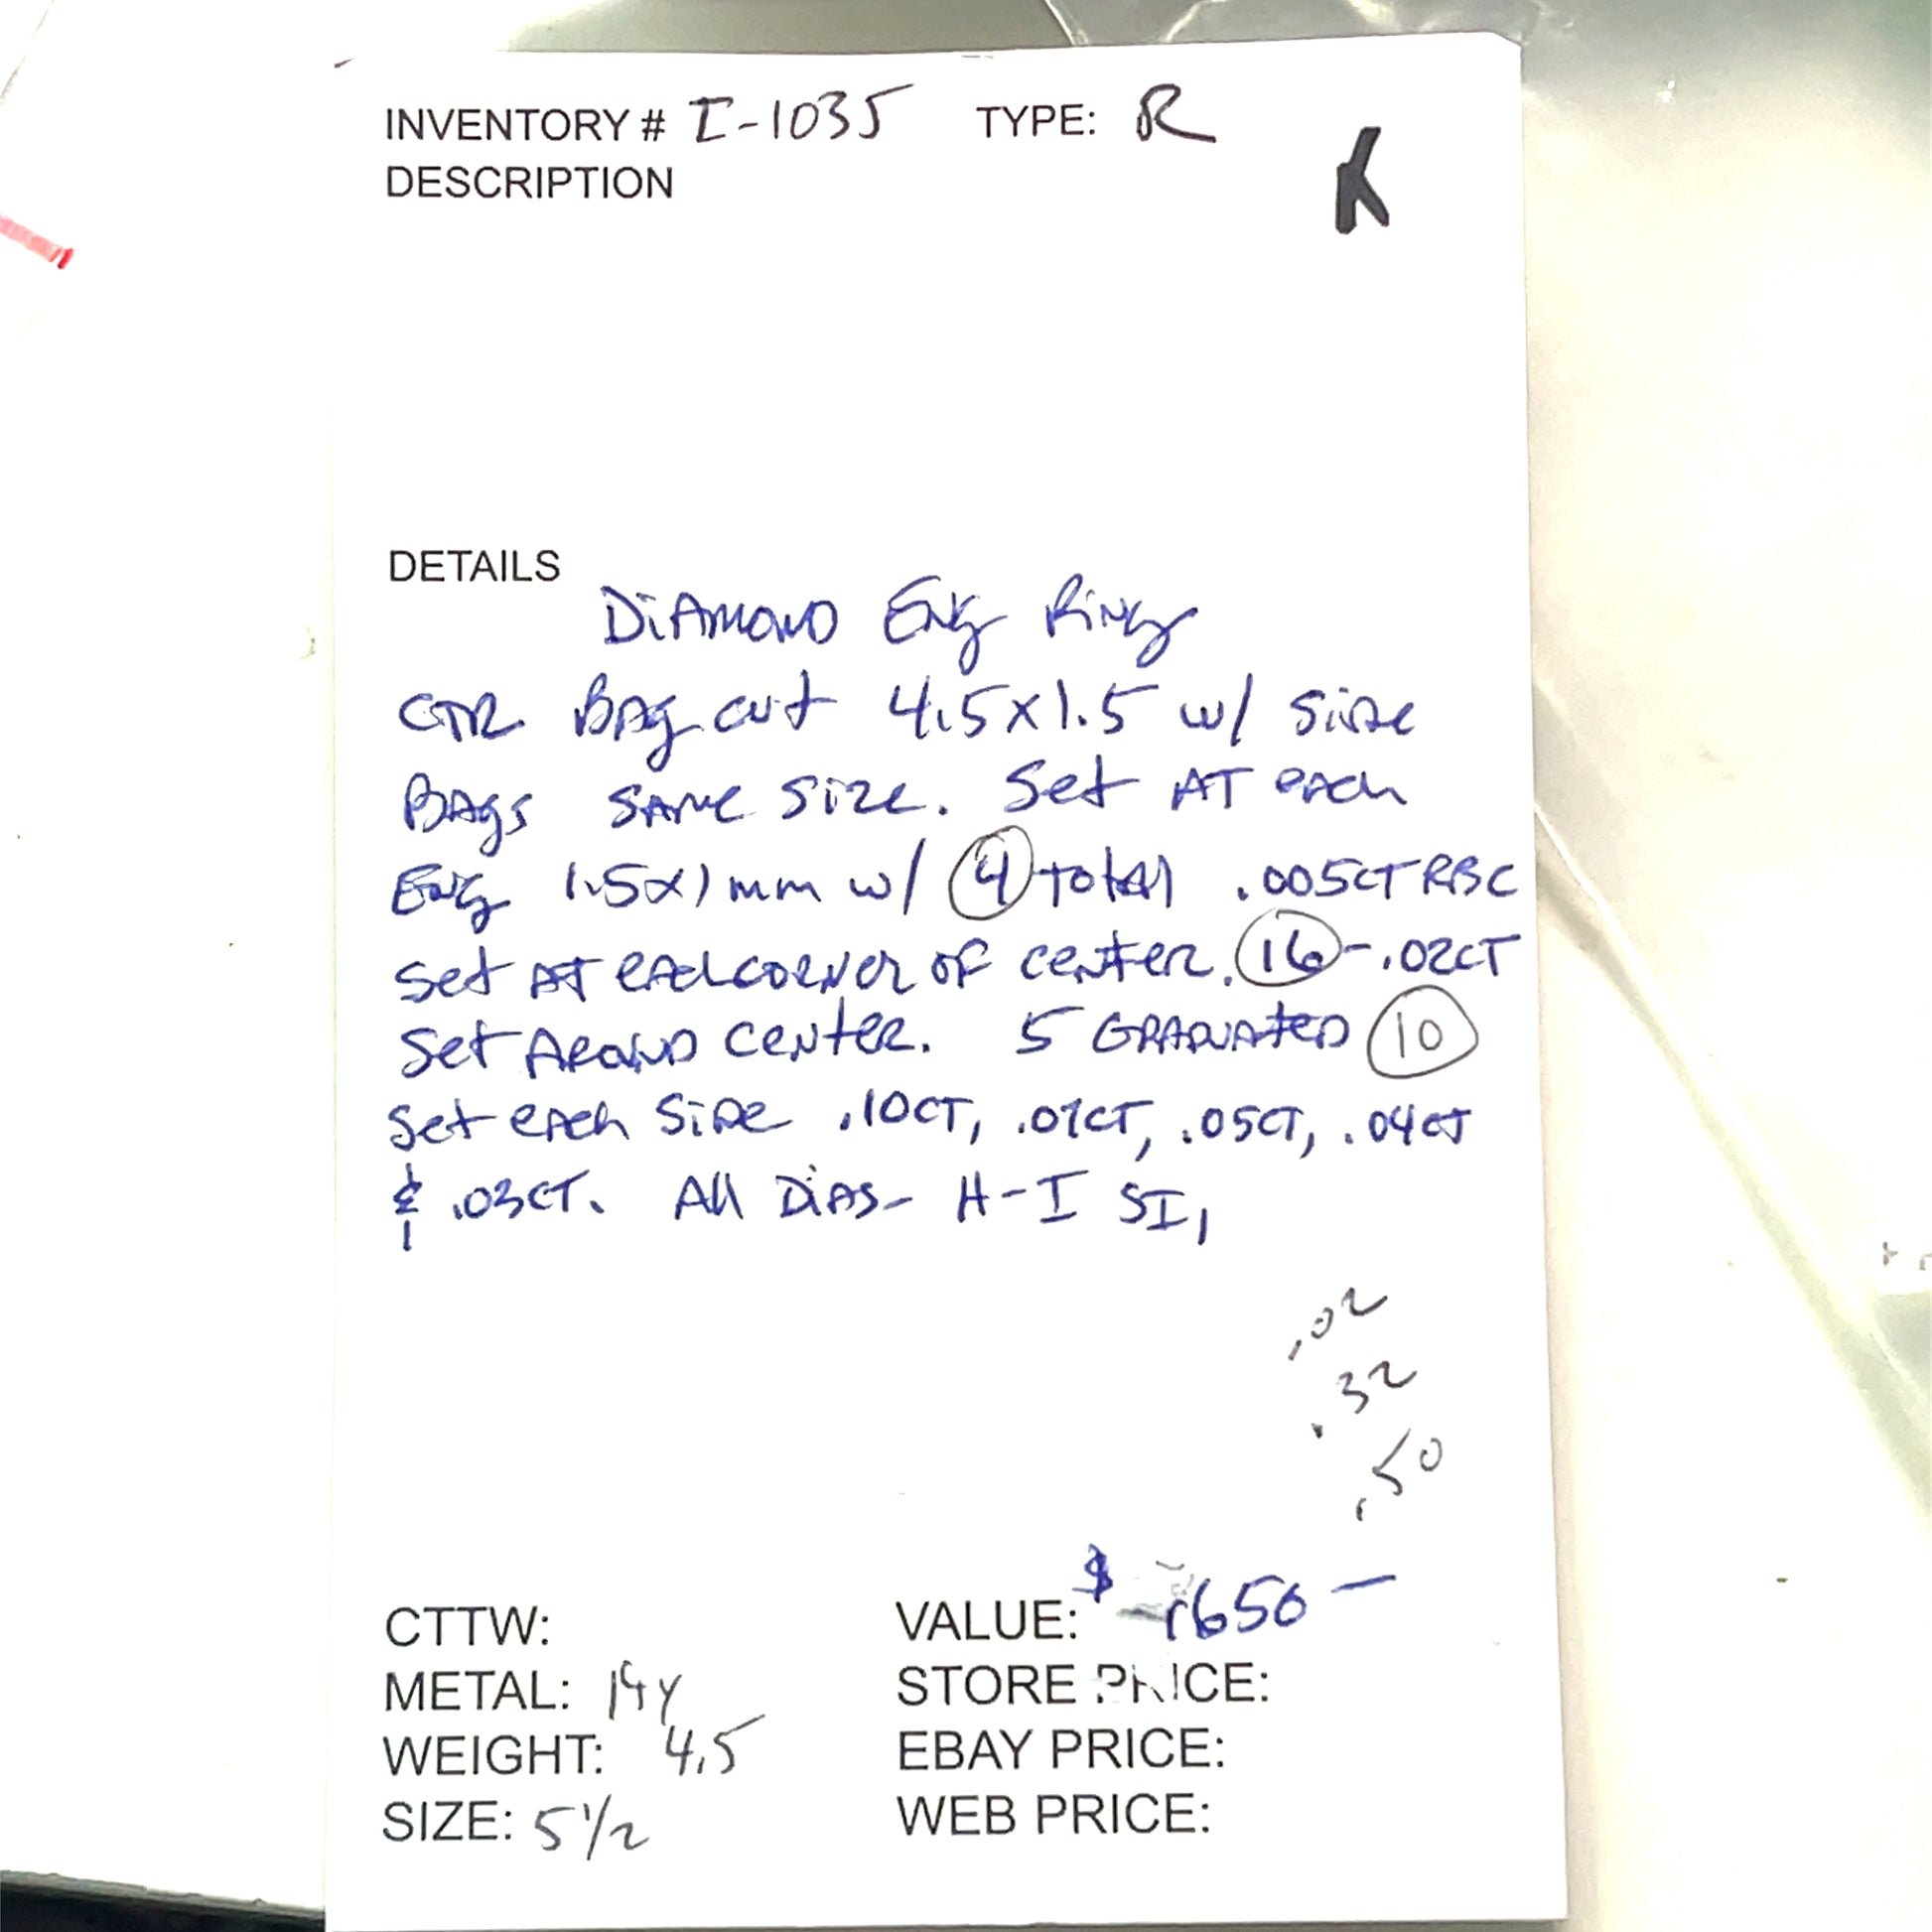 INVENTORY # I-1035 TYPE: R
K
DESCRIPTION
DETAILS
DIAMOND ENG RING
CTR BAG cut 4.5x1.5 w/ SIDE
BAGS SAME SIZE. Set AT each
END 1.5x1mm w/ 4 total .005CT RBC
Set AT each corner of center. 16 - .02CT
Set AROUND center. 5 GRADUATED 10
Set each SIDE .10CT, .07CT, .05CT, .04CT
& .03CT. All DIAS- H-I SI1
.02
.32
.50
CTTW: VALUE: $ 1650 —
METAL: 14Y STORE PRICE:
WEIGHT: 4.5 EBAY PRICE:
SIZE: 5 1/2 WEB PRICE: